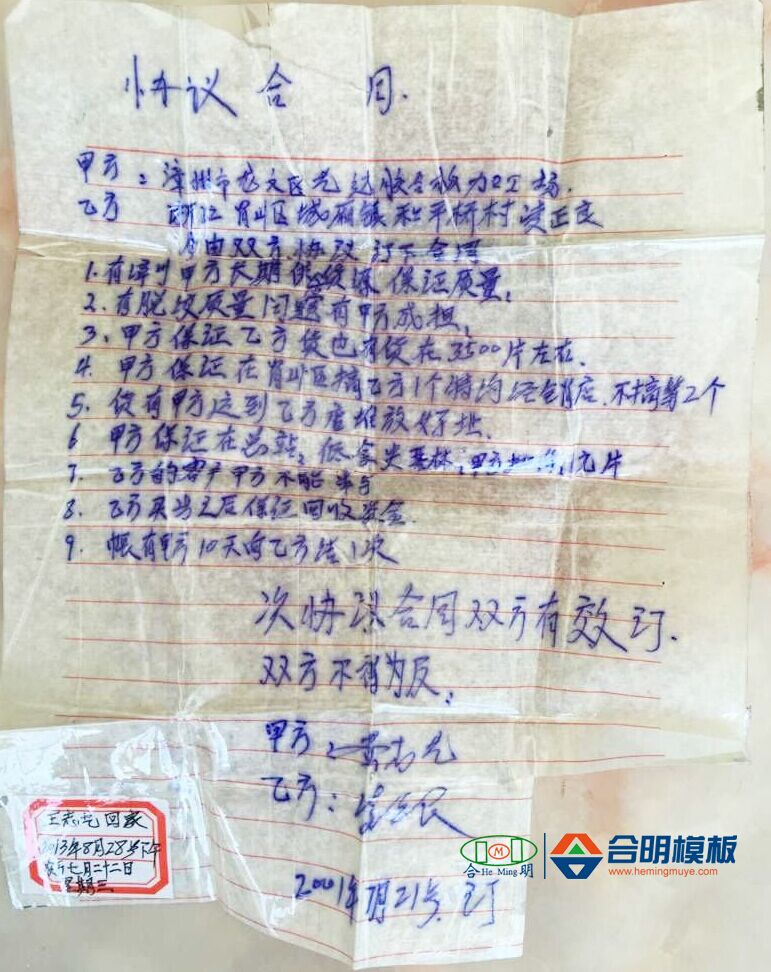 协议合同.
甲方:漳州市龙文区 胶合板加工场.
乙方 浙江萧山区城厢镇和平桥村 正良
今由双方协议订下合同
1.有漳州甲方长期供货源保证质量,
2.有脱胶质量问题有甲方成担,
3.甲方保证乙方 有货在3500片左右.
4.甲方保证在肖山区搞乙方1个 经销店.不搞第2个
5.货有甲方送到乙方 堆放好地.
6 甲方保证在 1元片
7.乙方的客户甲方不能
8.乙方 之后保证回收资金.
9.帐有甲方10天向乙方结1次
次协议合同双方有效订.
双方不得为反,
甲方:黄志
乙方:
2001年 月21号.订
回家
2013年8月28号下午
农历七月二十二日
星期三
合He Ming明
合明模板
www.hemingmuye.com